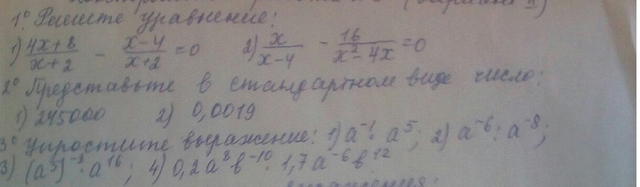 1° Решите уравнение:
1) (4x+8)/(x+2) - (x-4)/(x+2) = 0 2) x/(x-4) - 16/(x²-4x) = 0
2° Представьте в стандартном виде число:
1) 245000 2) 0,0019
3° Упростите выражение: 1) a⁻¹ · a⁵; 2) a⁻⁶ : a⁻⁸;
3) (a⁵)⁻³ · a¹⁶; 4) 0,2a⁸b⁻¹⁰ · 1,7a⁻⁶b¹²